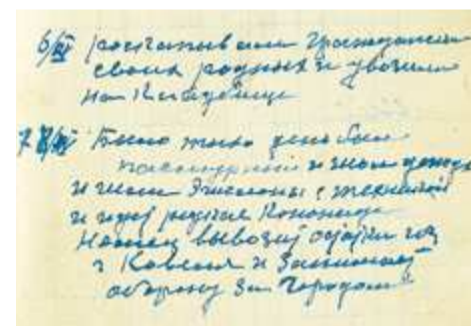 6/III расчапывали Граждане
своих родных и увозили
на Кладбище
7/III Было тихо день был
пасмурный и шол дождь
и шли Эшелоны с техникой
и идут
Немец вывозит остатки из
г Ковеля и Занимает
оборону За Городом"